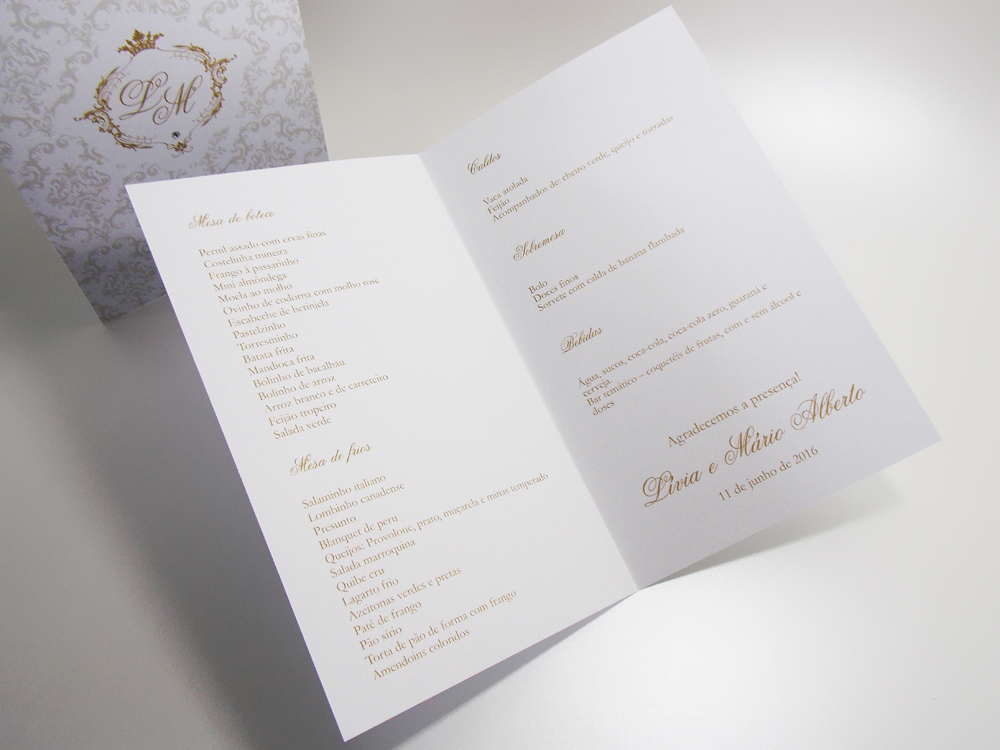 LM
Mesa de boteco
Pernil assado com ervas finas
Costelinha mineira
Frango à passarinho
Mini almôndega
Moela ao molho
Ovinho de codorna com molho rosé
Escabeche de berinjela
Pastelzinho
Torresminho
Batata frita
Mandioca frita
Bolinho de bacalhau
Bolinho de arroz
Arroz branco e de carreteiro
Feijão tropeiro
Salada verde
Mesa de frios
Salaminho italiano
Lombinho canadense
Presunto
Blanquet de peru
Queijos: Provolone, prato, muçarela e minas temperado
Salada marroquina
Quibe cru
Lagarto frio
Azeitonas verdes e pretas
Patê de frango
Pão sírio
Torta de pão de forma com frango
Amendoins coloridos
Caldos
Vaca atolada
Feijão
Acompanhados de: cheiro verde, queijo e torradas
Sobremesa
Bolo
Doces finos
Sorvete com calda de banana flambada
Bebidas
Água, sucos, coca-cola, coca-cola zero, guaraní e
cerveja.
Bar temático – coquetéis de frutas, com e sem álcool e
doses
Agradecemos a presença!
Lívia e Mário Alberto
11 de junho de 2016